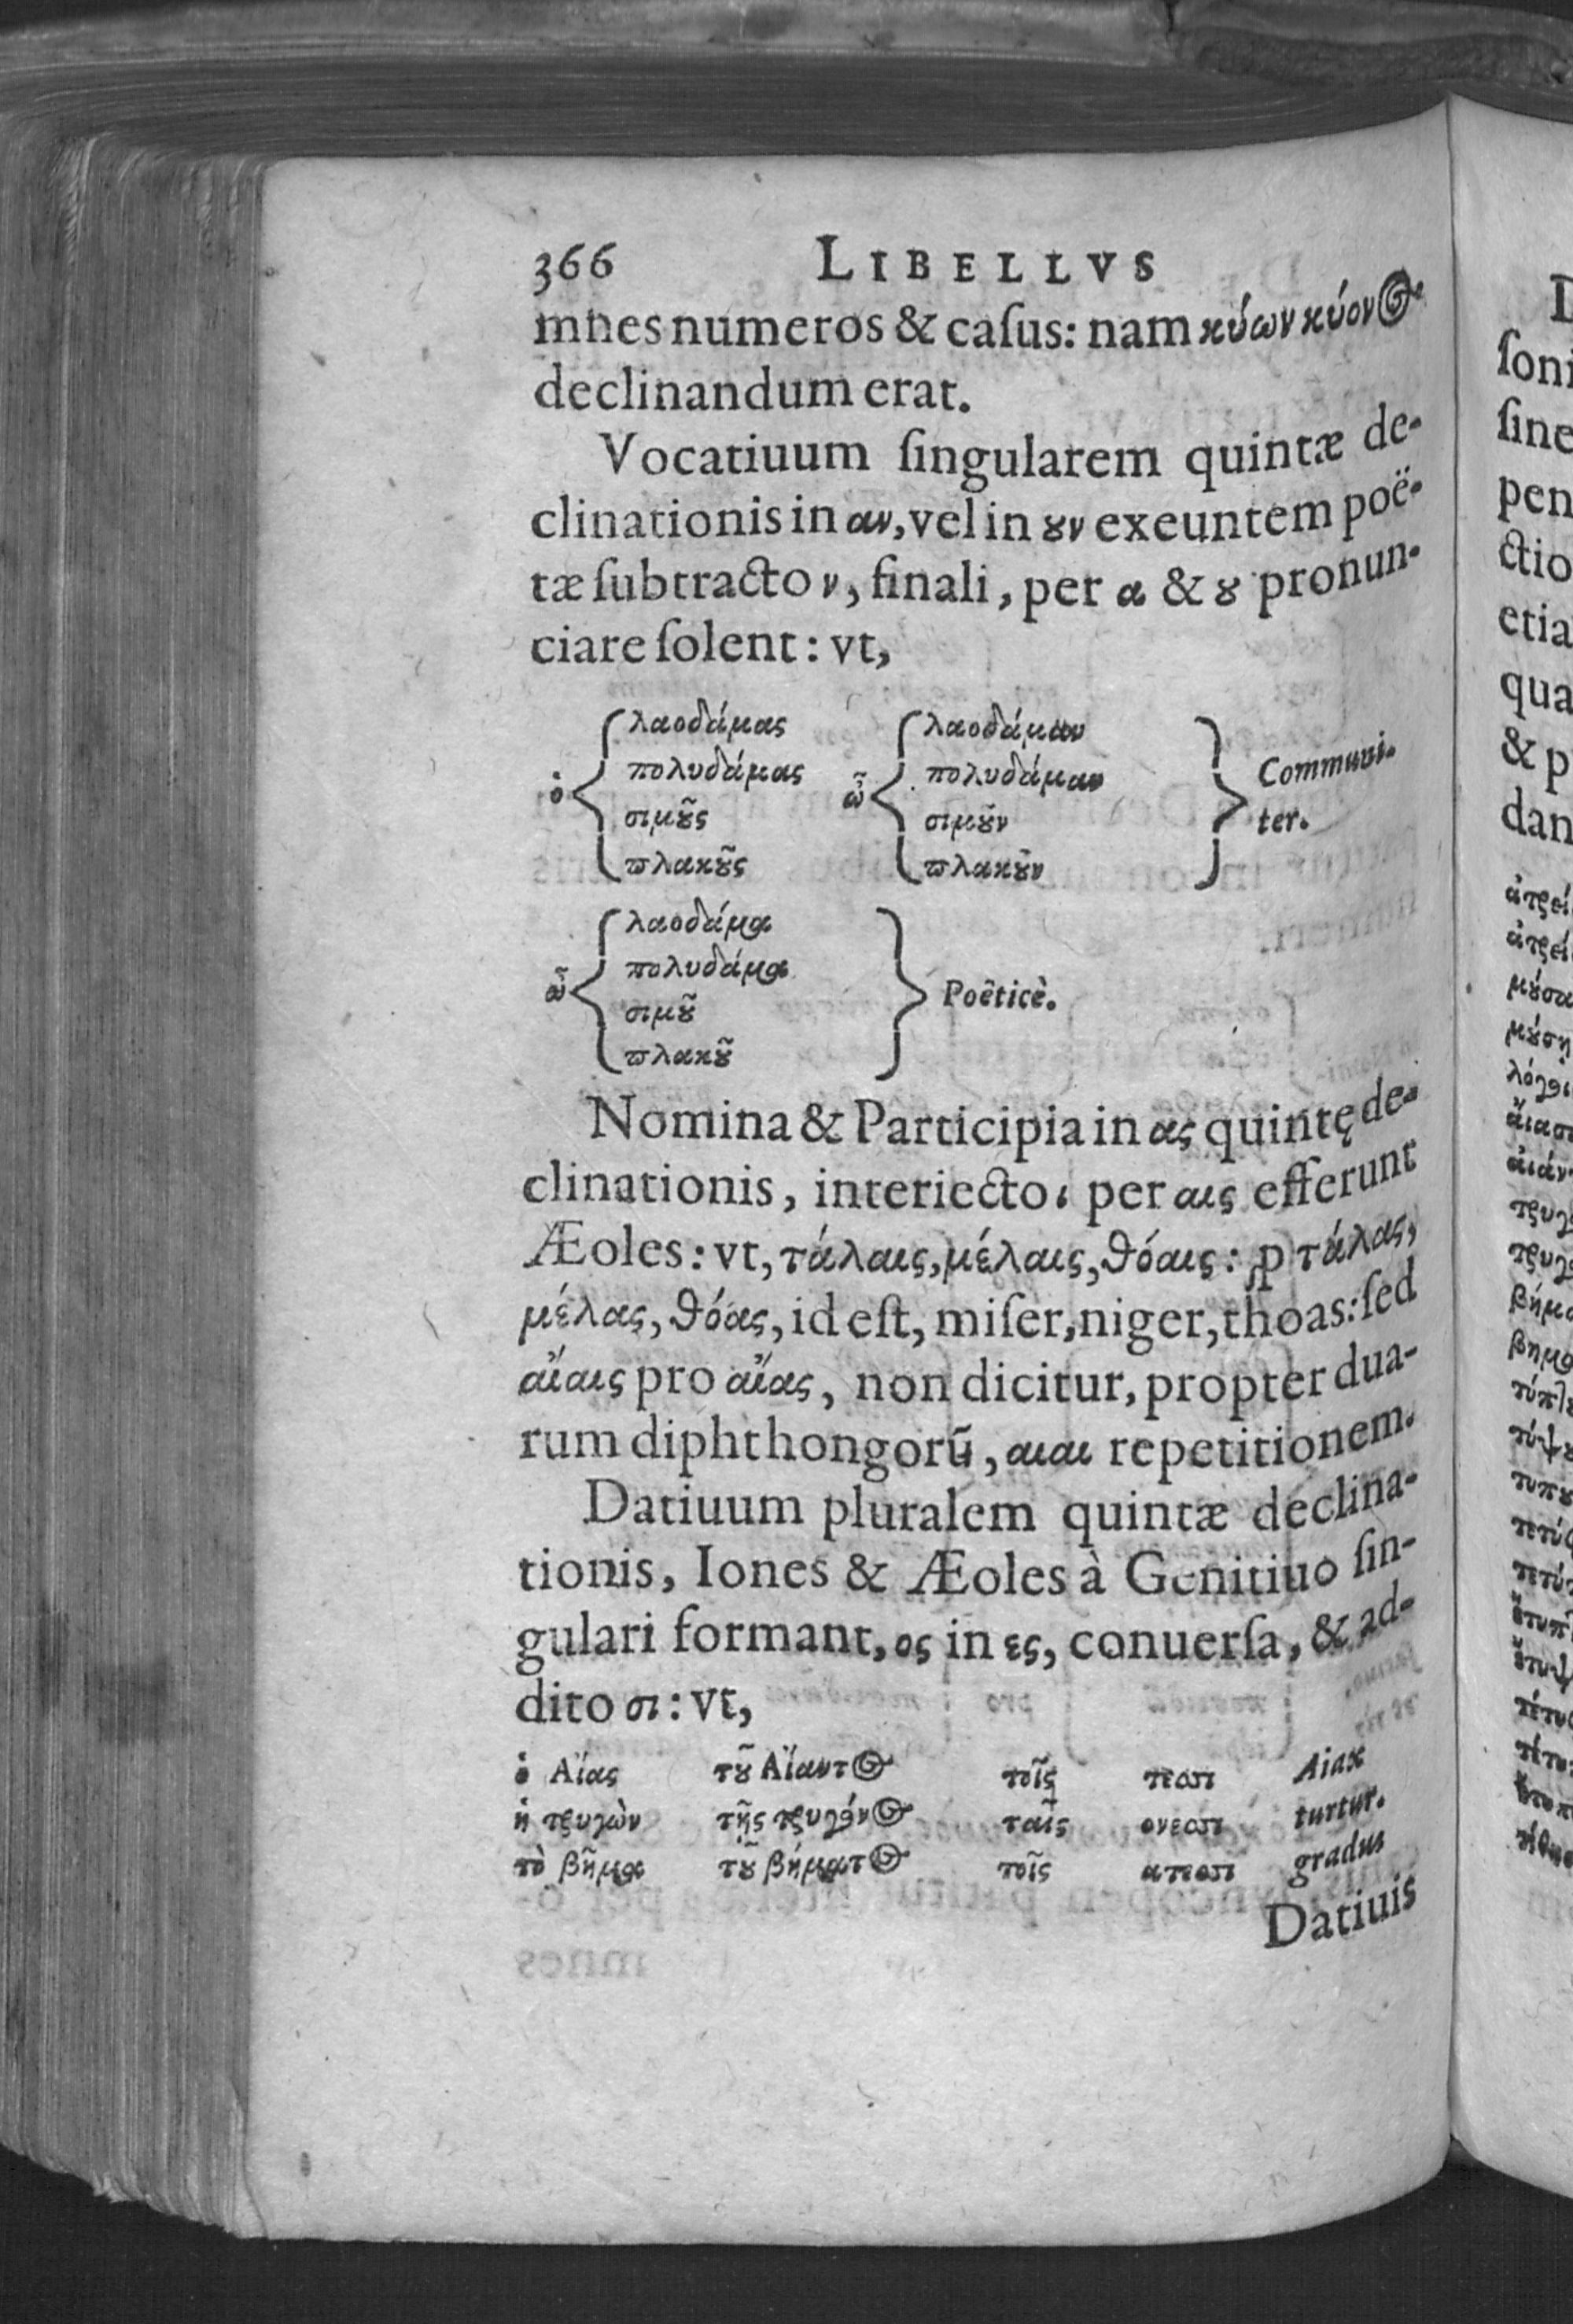 366 LIBELLVS
mnes numeros & caſus: nam κύων κύονος
declinandum erat.
Vocatiuum ſingularem quintæ de-
clinationis in αν, vel in ȣν exeuntem poë-
tæ ſubtracto ν, finali, per α & ȣ pronun-
ciare ſolent: vt,
λαοδάμας λαοδάμαν
πολυδάμας πολυδάμαν Communi-
ὁ ὦ
σιμȣ͂ς σιμȣ͂ν ter.
πλακȣ͂ς πλακȣ͂ν
λαοδάμα
πολυδάμα
ὦ Poëticè.
σιμȣ͂
πλακȣ͂
Nomina & Participia in ας quintę de-
clinationis, interiecto ι per αις efferunt
Æoles: vt, τάλαις, μέλαις, θόαις: ꝓ τάλας,
μέλας, θόας, id eſt, miſer, niger, thoas: ſed
αἴαις pro αἴας, non dicitur, propter dua-
rum diphthongorũ, αιαι repetitionem.
Datiuum pluralem quintæ declina-
tionis, Iones & Æoles à Genitiuo ſin-
gulari formant, ος in ες, conuerſa, & ad-
dito σι: vt,
ὁ Αἴας τȣ͂ Αἴαντος τοῖς τεσι Aiax
ἡ τρυγὼν τῆς τρυγόνος ταῖς ονεσι turtur.
τὸ βῆμα τȣ͂ βήματος τοῖς ατεσι gradus
Datiuis
ſoni
ſine
pen
ctio
etia
qua
& p
dan